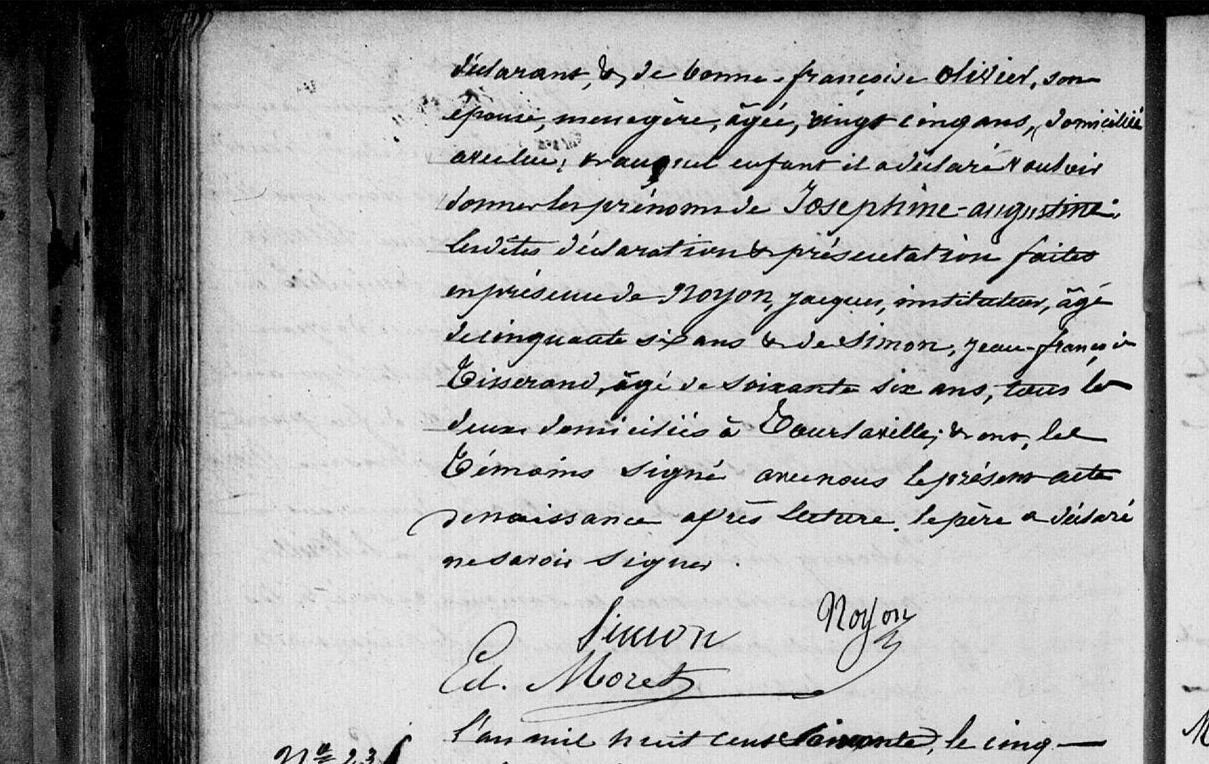 déclarant, & de bonne-françoise olivier, son
épouse, menagère, âgée, vingt cinq ans, domiciliée
avec lui; & auquel enfant il a déclaré vouloir
donner les prénoms de Josephine-augustine.
lesdites déclaration & présentation faites
en présence de Noyon, jacques, instituteur, âgé
de cinquante six ans & de Simon, jean-françois
Tisserand, âgé de soixante six ans, tous les
deux domiciliés à Tourlaville; & ont, les
Témoins signé avec nous le présent acte
de naissance après lecture. le père a déclaré
ne savoir signer.
Simon Noyon
Ed. Moret
L'an mil huit cent soixante, le cinq
Nº 23